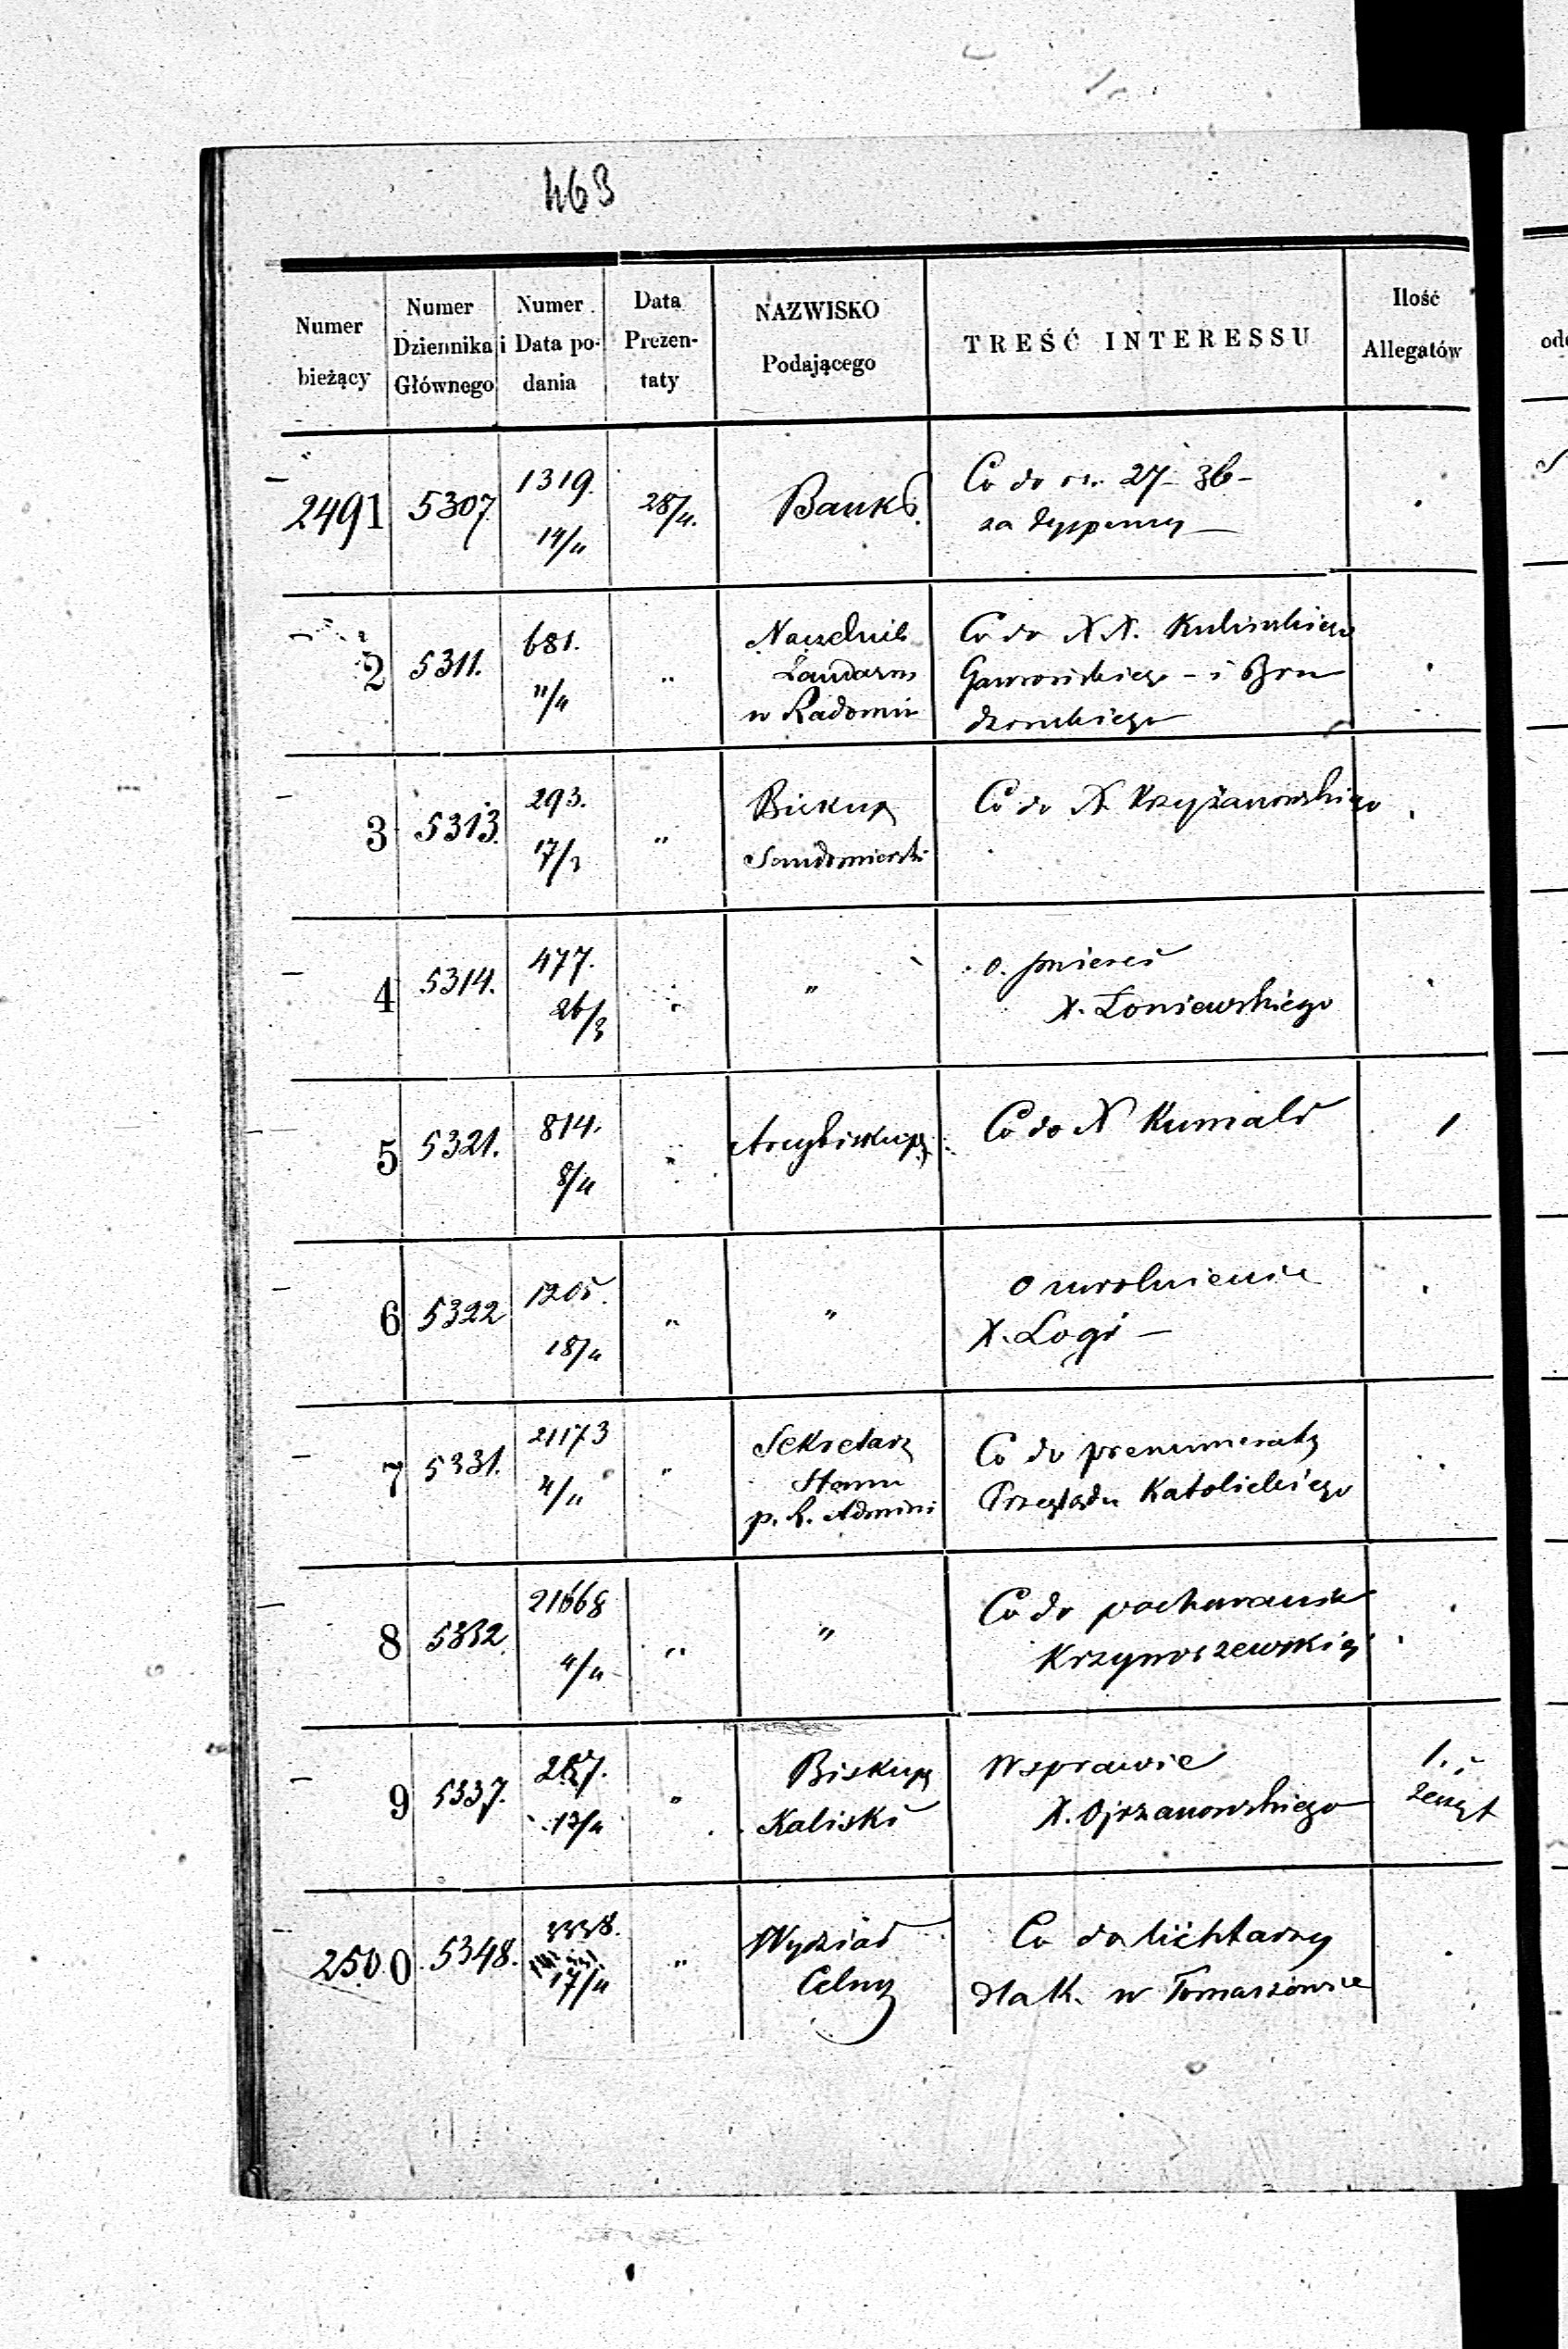 463
Numer bieżący | Numer Dziennika Głównego | Numer i Data podania | Data Prezentaty | NAZWISKO Podającego | TREŚĆ INTERESSU | Ilość Allegatów
2491 | 5307 | 1319. 14/4 | 28/4. | Bank P. | Co do rs. 27 - 36 - za dyspensy —
2 | 5311. | 681. 11/4 | " | Naczelnik Żandarm w Radomiu | Co do XX. Kulińskiego Gawrońskiego - i Bru dzińskiego
3 | 5313. | 293. 17/3 | " | Biskup Sandomierski | Co do X Krzyżanowskiego
4 | 5314. | 477. 26/3 | " | " | o śmierci X. Łoniewskiego
5 | 5321. | 814. 8/4 | " | Arcybiskup | Co do X Rumald | 1
6 | 5322 | 1205. 18/4 | " | " | o uwolnienie X. Logi —
7 | 5331. | 21173 4/4 | " | Sekretarz Stanu p. R. Admini | Co do prenumeraty Przeglądu Katolickiego
8 | 5332. | 21668 4/4 | " | " | Co do pochowania Krzynoszewskiej
9 | 5337. | 287. 13/4 | " | Biskup Kaliski | W sprawie X. Ojrzanowskiego | 1. zeszyt
2500 | 5348. | 3338. 17/4 | " | Wydział Celny | Co do lichtarzy dla K. w Tomaszowie